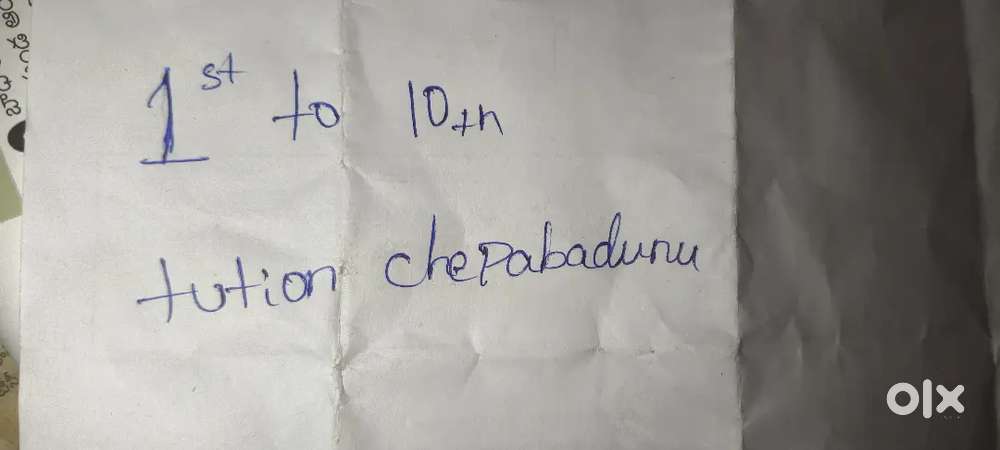 1st to 10th
tution chepabadunu
olx